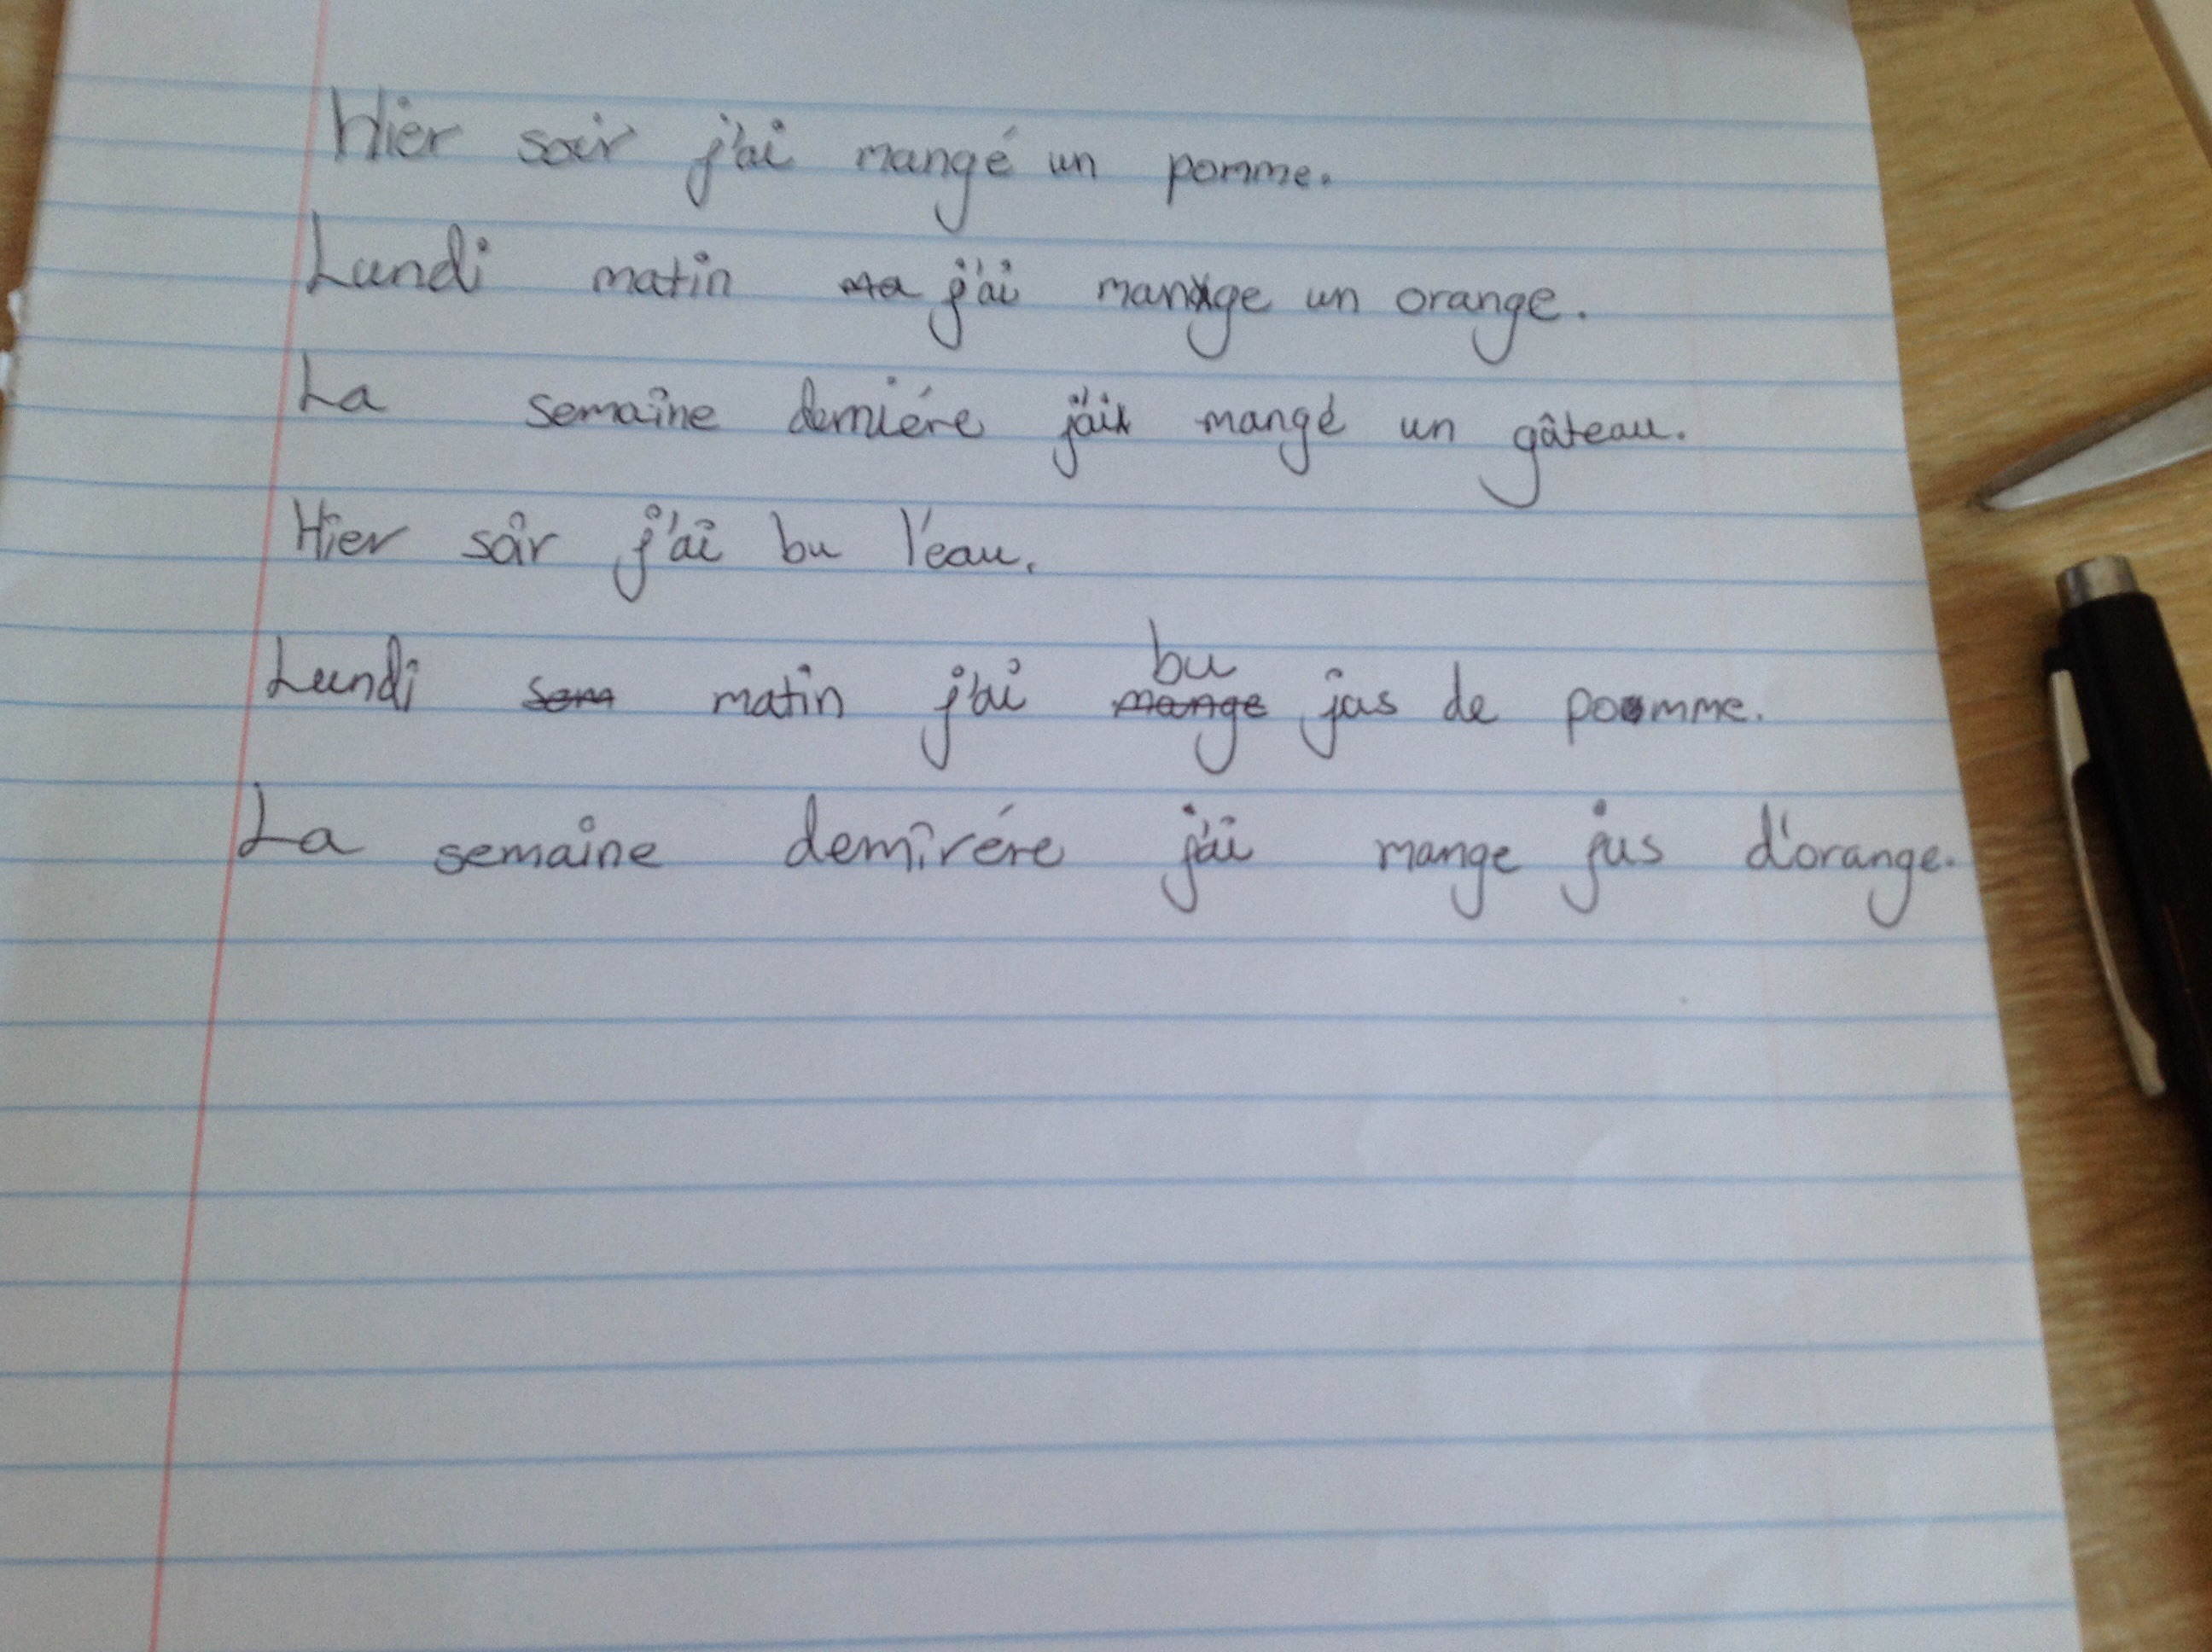 Hier soir j'ai mangé un pomme.
Lundi matin j'ai mange un orange.
La semaine derniére j'ai mangé un gâteau.
Hier soir j'ai bu l'eau.
Lundi matin j'ai bu jus de pomme.
La semaine dernirére j'ai mange jus d'orange.